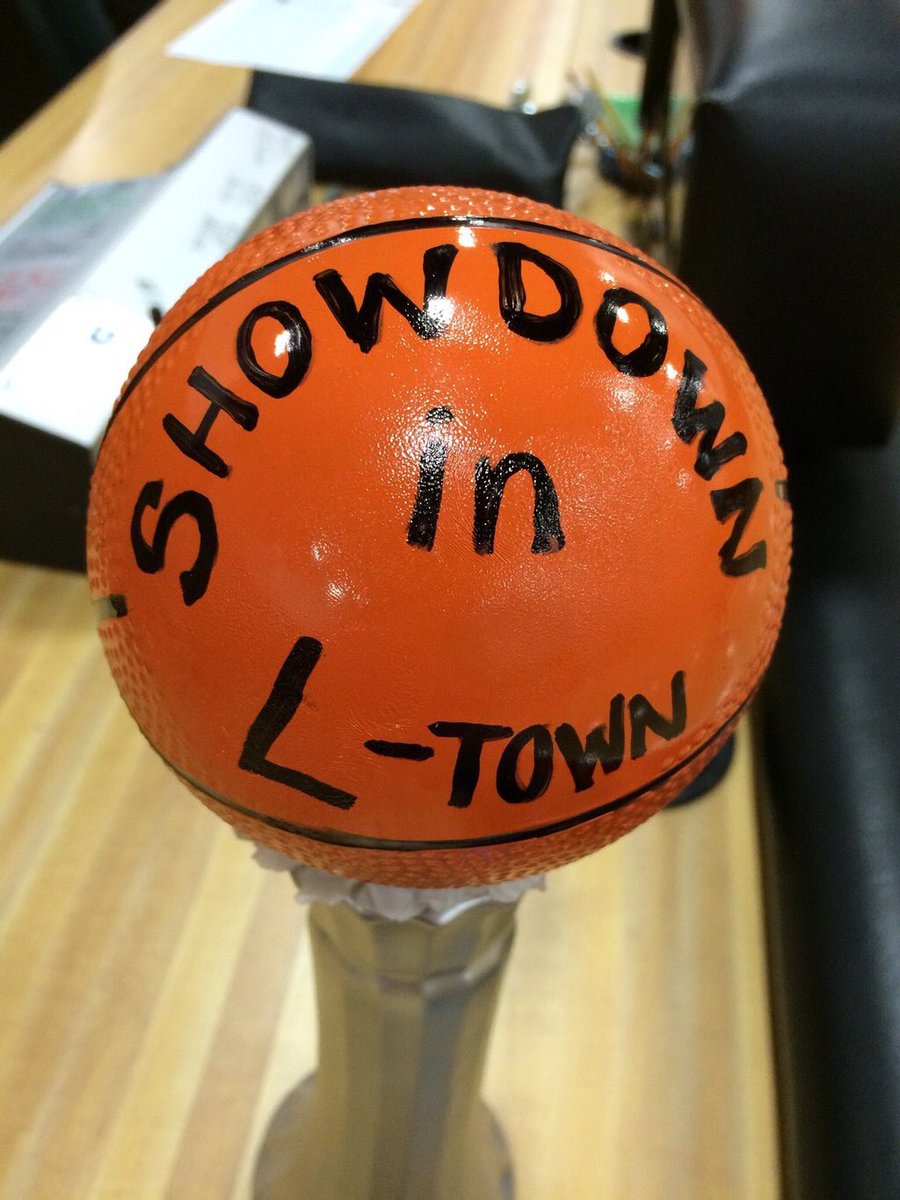 SHOWDOWN
in
L-TOWN